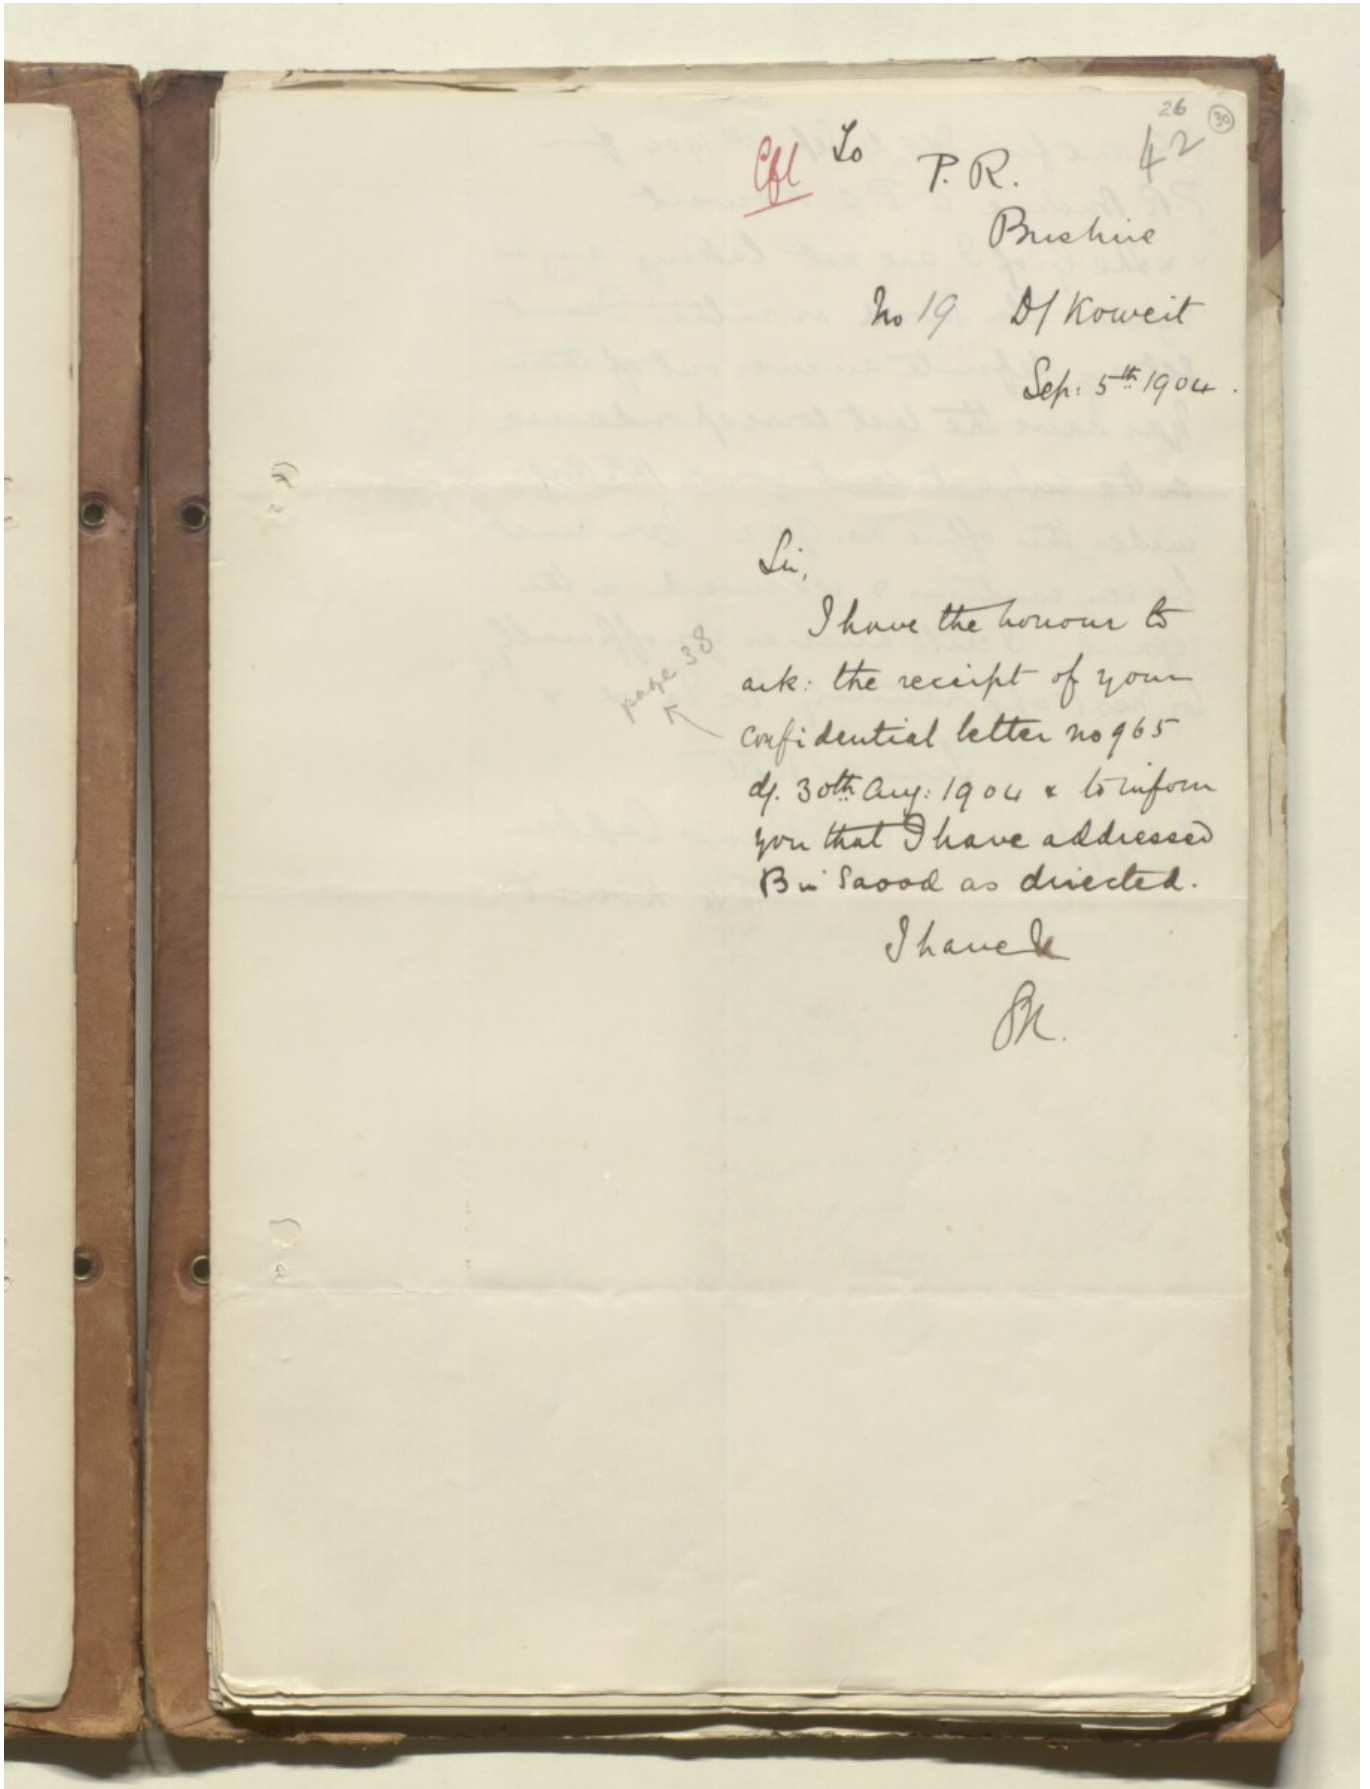 26
30
42
Cfl
To
P. R.
Bushire
No 19 D/ Koweit
Sep: 5th 1904.
Sir,
I have the honour to
ack: the receipt of your
page 38
confidential letter no 965
d/. 30th Aug: 1904 & to inform
you that I have addressed
Bin Saood as directed.
I have &c